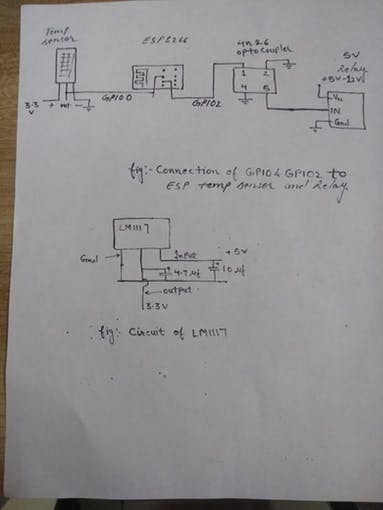 Temp
sensor
ESP8266
4n26
optocoupler
5V
Relay
+5V-12V
1 2
4 5
Vcc
IN
Gnd
3.3
V
+ out -
GPIO0
GPIO2
fig:- Connection of GPIO & GPIO2 to
ESP temp sensor and Relay
LM1117
Gnd
Input
+5V
4.7uf
10uf
output
3.3V
fig:- Circuit of LM1117